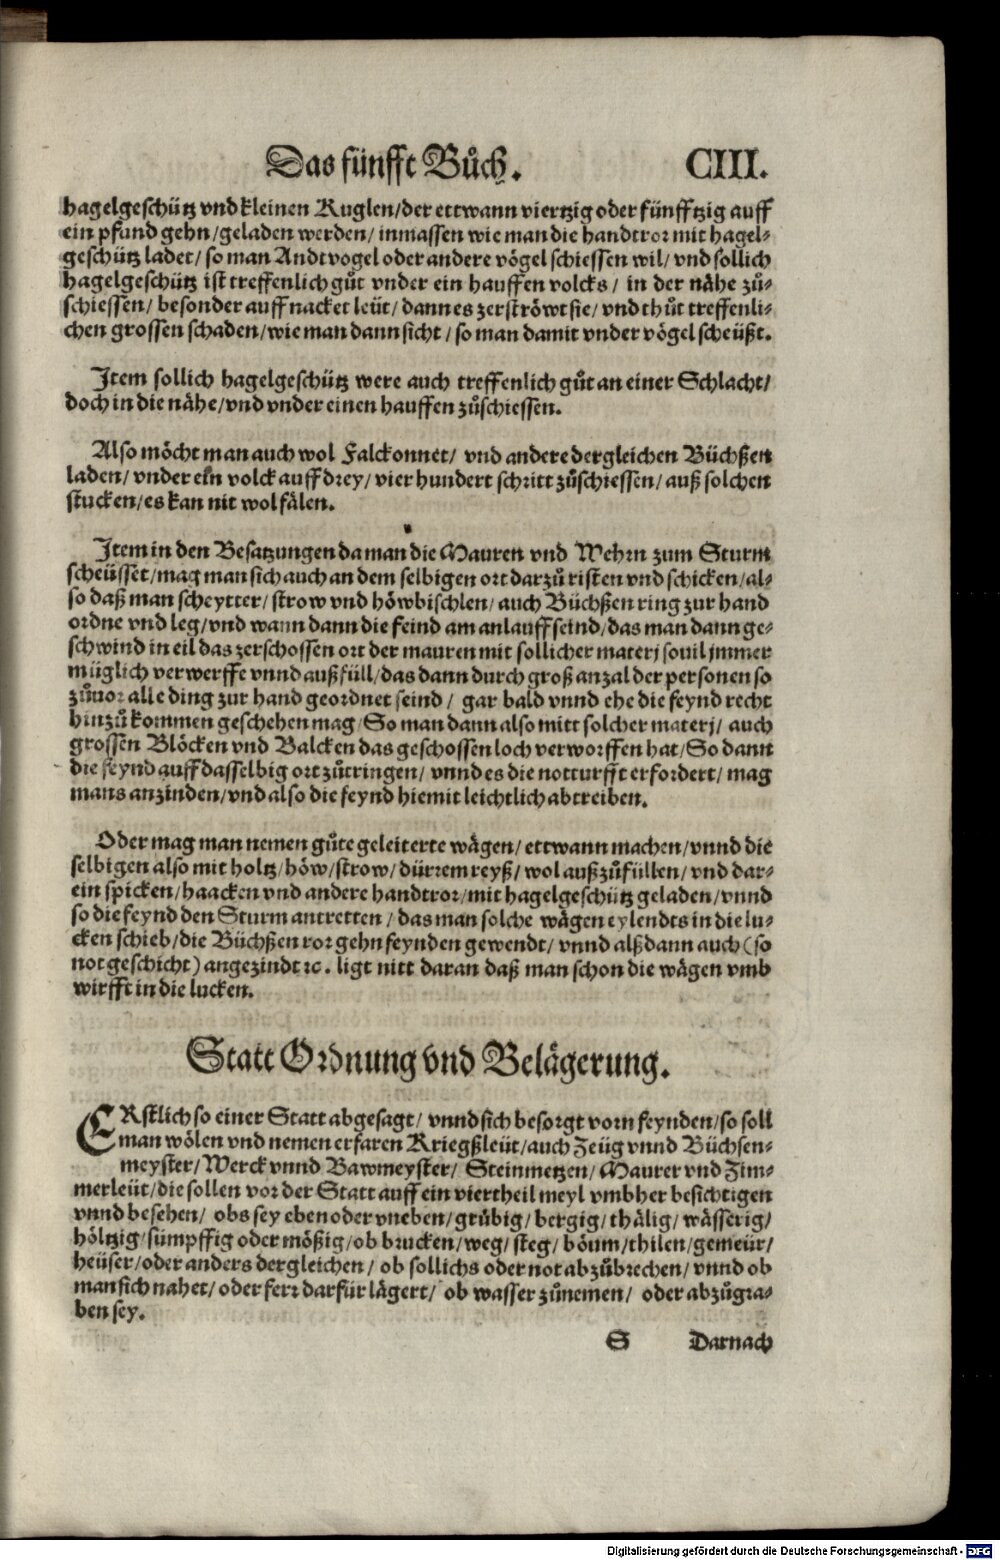 Das fünfft Bůch. CIII.
hagelgeschütz vnd kleinen Kuglen/der ettwann viertzig oder fünfftzig auff
ein pfund gehn/geladen werden/inmassen wie man die handtror mit hagel-
geschütz ladet/so man Andtvogel oder andere vögel schiessen wil/vnd sollich
hagelgeschütz ist treffenlich gůt vnder ein hauffen volcks/in der nähe zů-
schiessen/besonder auff nacket leüt/dann es zerströwt sie/vnd thůt treffenli-
chen grossen schaden/wie man dann sicht/so man damit vnder vögel scheüßt.
Item sollich hagelgeschütz were auch treffenlich gůt an einer Schlacht/
doch in die nähe/vnd vnder einen hauffen zůschiessen.
Also möcht man auch wol Falckonnet/ vnd andere dergleichen Büchßen
laden/vnder ein volck auff drey/vier hundert schritt zůschiessen/auß solchen
stucken/es kan nit wol fälen.
Item in den Besatzungen da man die Mauren vnd Wehrn zum Sturm
scheüsset/mag man sich auch an dem selbigen ort darzů risten vnd schicken/al-
so daß man scheytter/strow vnd höwbischlen/auch Büchßen ring zur hand
ordne vnd leg/vnd wann dann die feind am anlauff seind/das man dann ge-
schwind in eil das zerschossen ort der mauren mit sollicher materj souil jmmer
müglich verwerffe vnnd außfüll/das dann durch groß anzal der personen so
zůuor alle ding zur hand geordnet seind/ gar bald vnnd ehe die feynd recht
hinzů kommen geschehen mag/So man dann also mitt solcher materj/ auch
grossen Blöcken vnd Balcken das geschossen loch verworffen hat/So dann
die feynd auff dasselbig ort zůtringen/vnnd es die notturfft erfordert/mag
mans anzinden/vnd also die feynd hiemit leichtlich abtreiben.
Oder mag man nemen gůte geleiterte wägen/ettwann machen/vnnd die
selbigen also mit holtz/höw/strow/dürrem reyß/wol außzůfüllen/vnd dar-
ein spicken/haacken vnd andere handtror/mit hagelgeschütz geladen/vnnd
so die feynd den Sturm antretten/das man solche wägen eylendts in die lu-
cken schieb/die Büchßen ror gehn feynden gewendt/vnnd alßdann auch (so
not geschicht) angezindt ꝛc. ligt nitt daran daß man schon die wägen vmb
wirfft in die lucken.
Statt Ordnung vnd Belägerung.
ERstlich so einer Statt abgesagt/vnnd sich besorgt vorn feynden/so soll
man wölen vnd nemen erfaren Kriegßleüt/auch Zeüg vnnd Büchsen-
meyster/Werck vnnd Bawmeyster/ Steinmetzen/Maurer vnd Zim-
merleüt/die sollen vor der Statt auff ein viertheil meyl vmbher besichtigen
vnnd besehen/ obs sey eben oder vneben/grübig/bergig/thälig/wässerig/
höltzig/sümpffig oder mößig/ob brucken/weg/steg/böum/thilen/gemeür/
heüser/oder anders dergleichen/ob sollichs oder not abzůbrechen/vnnd ob
man sich nahet/oder ferr darfür lägert/ ob wasser zůnemen/ oder abzůgra-
ben sey.
S Darnach
Digitalisierung gefördert durch die Deutsche Forschungsgemeinschaft - DFG